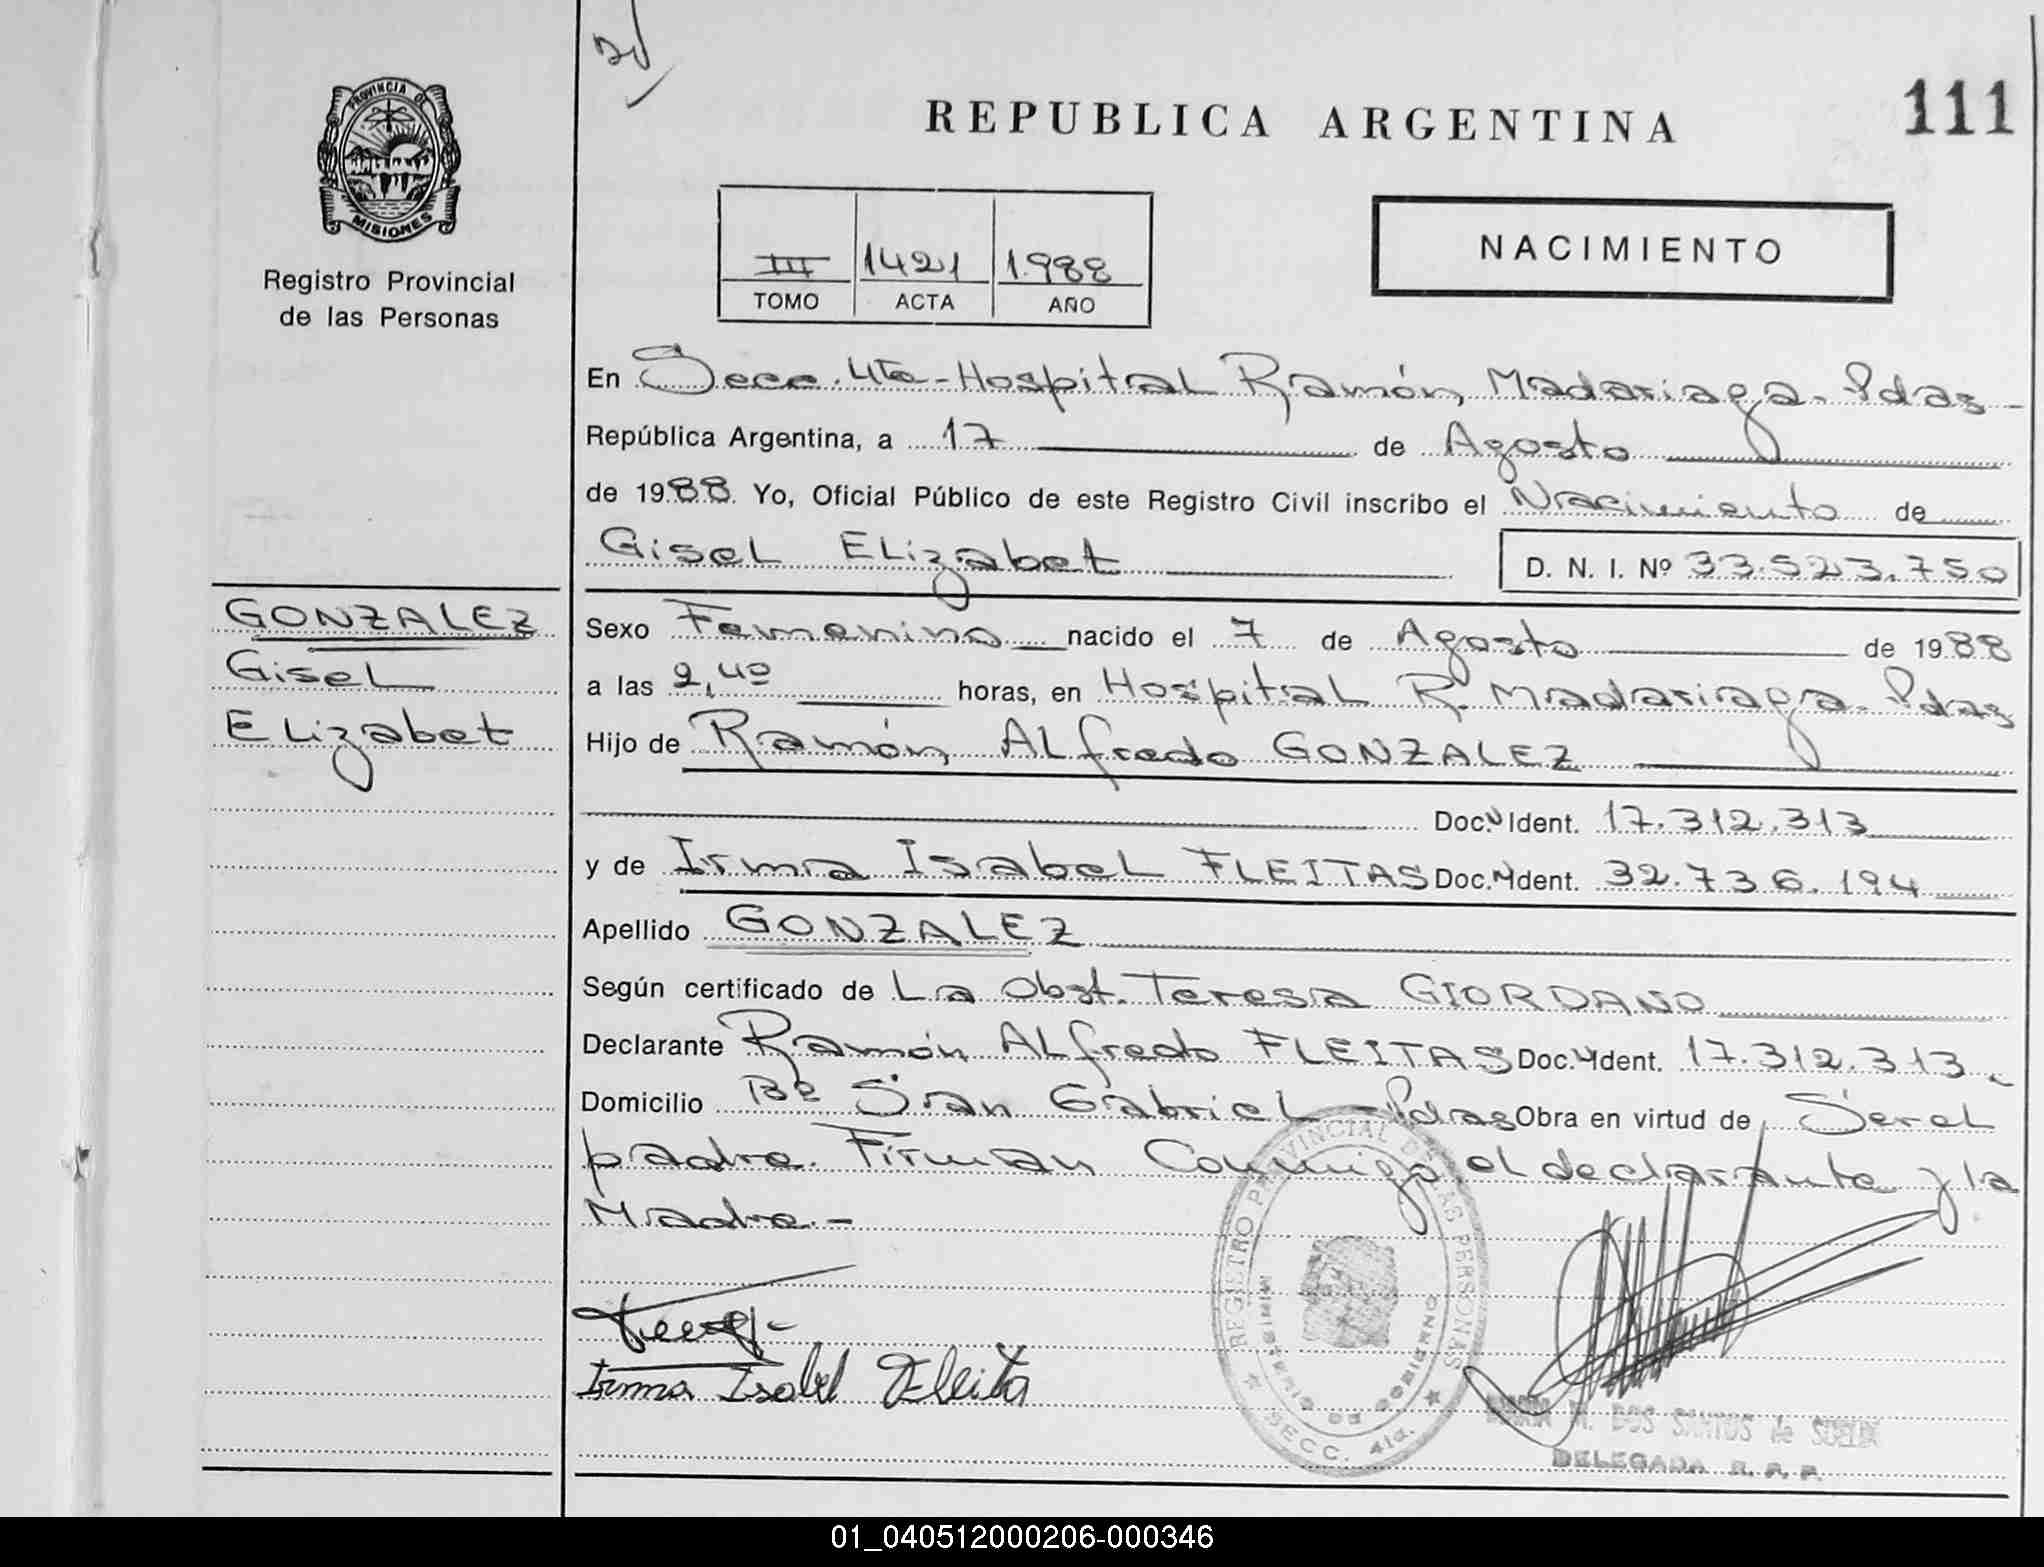 REPUBLICA ARGENTINA
111
PROVINCIA DE
MISIONES
Registro Provincial
de las Personas
III 1421 1.988
TOMO ACTA AÑO
NACIMIENTO
En Secc. 4ta - Hospital Ramón Madariaga - Pdas -
República Argentina, a 17 de Agosto
de 1988 Yo, Oficial Público de este Registro Civil inscribo el Nacimiento de
Gisel Elizabet D. N. I. Nº 33.523.750
GONZALEZ
Gisel
Elizabet
Sexo Femenino nacido el 7 de Agosto de 1988
a las 2,40 horas, en Hospital R. Madariaga - Pdas
Hijo de Ramón Alfredo GONZALEZ
Doc. Ident. 17.312.313
y de Irma Isabel FLEITAS Doc. Ident. 32.736.194
Apellido GONZALEZ
Según certificado de La Obst. Teresa GIORDANO
Declarante Ramón Alfredo FLEITAS Doc. Ident. 17.312.313
Domicilio Bº San Gabriel - Pdas Obra en virtud de Ser el
padre. Firman Conmigo el declarante y la
Madre. -
Irma Isabel Fleita
REGISTRO PROVINCIAL DE LAS PERSONAS
MINISTERIO DE GOBIERNO
SECC. 4ta.
M. DOS SANTOS de
DELEGADA R. P. P.
01_040512000206-000346